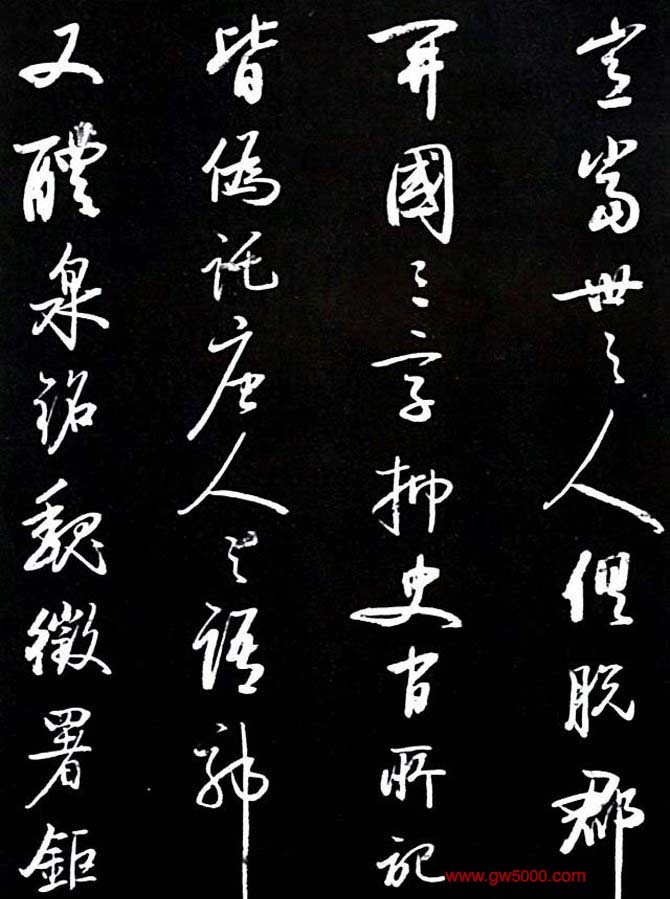 豈當世之人俱脱郡
開國三字抑史官所記
皆偽託唐人之語耶
又醴泉銘魏徵署鉅
www.gw5000.com